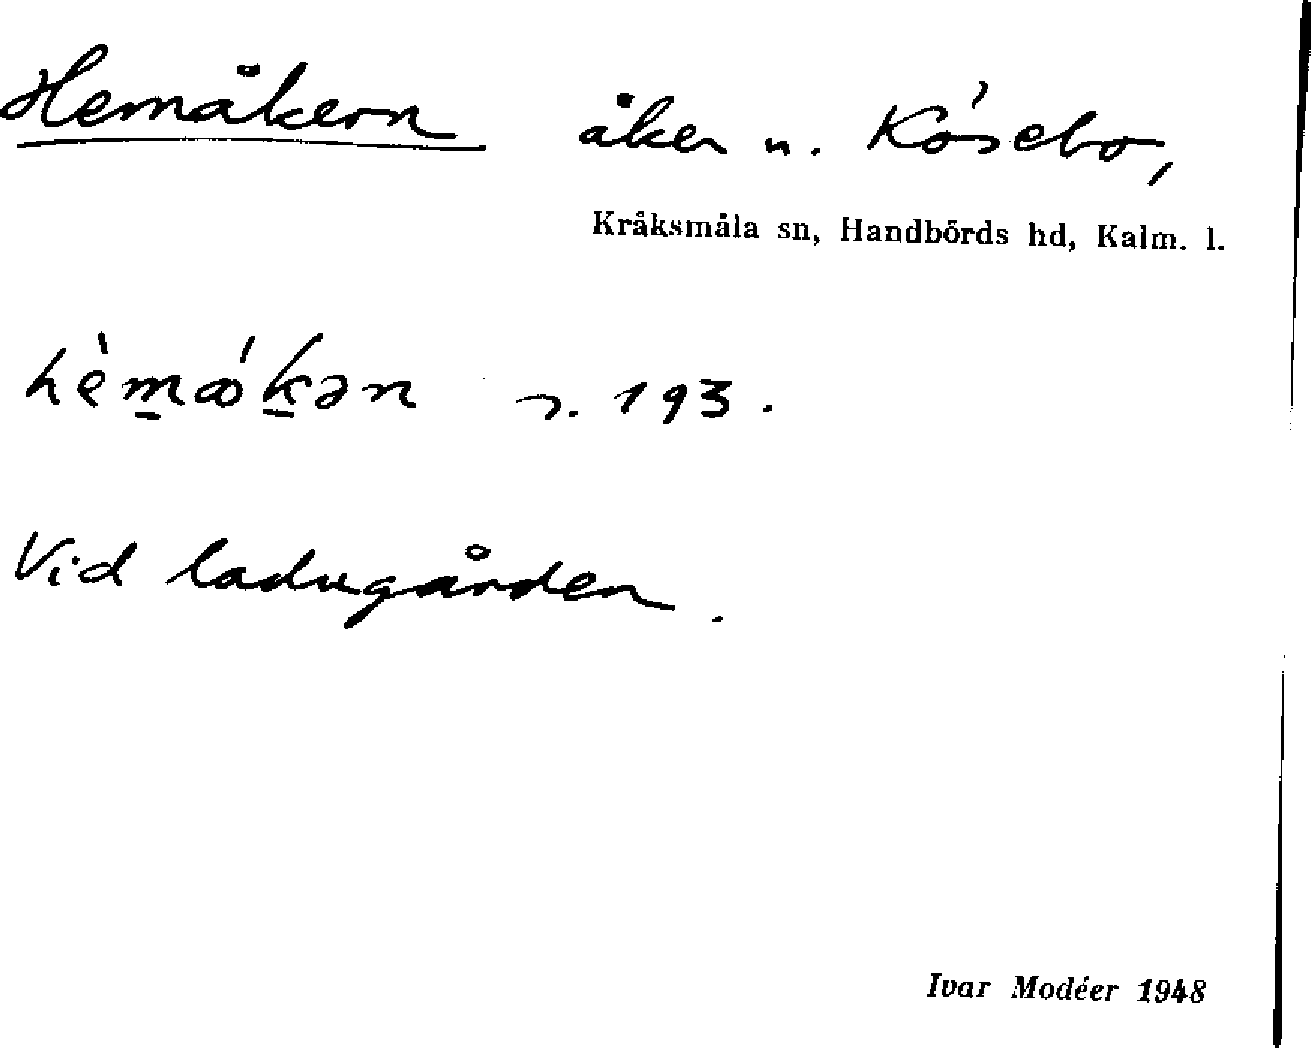 Hemåkern åker u. Kösebo,
Kråksmåla sn, Handbörds hd, Kalm. l.
hèm̲åk̲ən s. 193.
Vid ladugården.
Ivar Modéer 1948